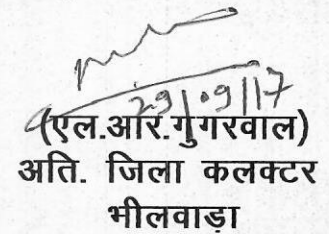 29/09/17
(एल.आर.गुगरवाल)
अति. जिला कलक्टर
भीलवाडा